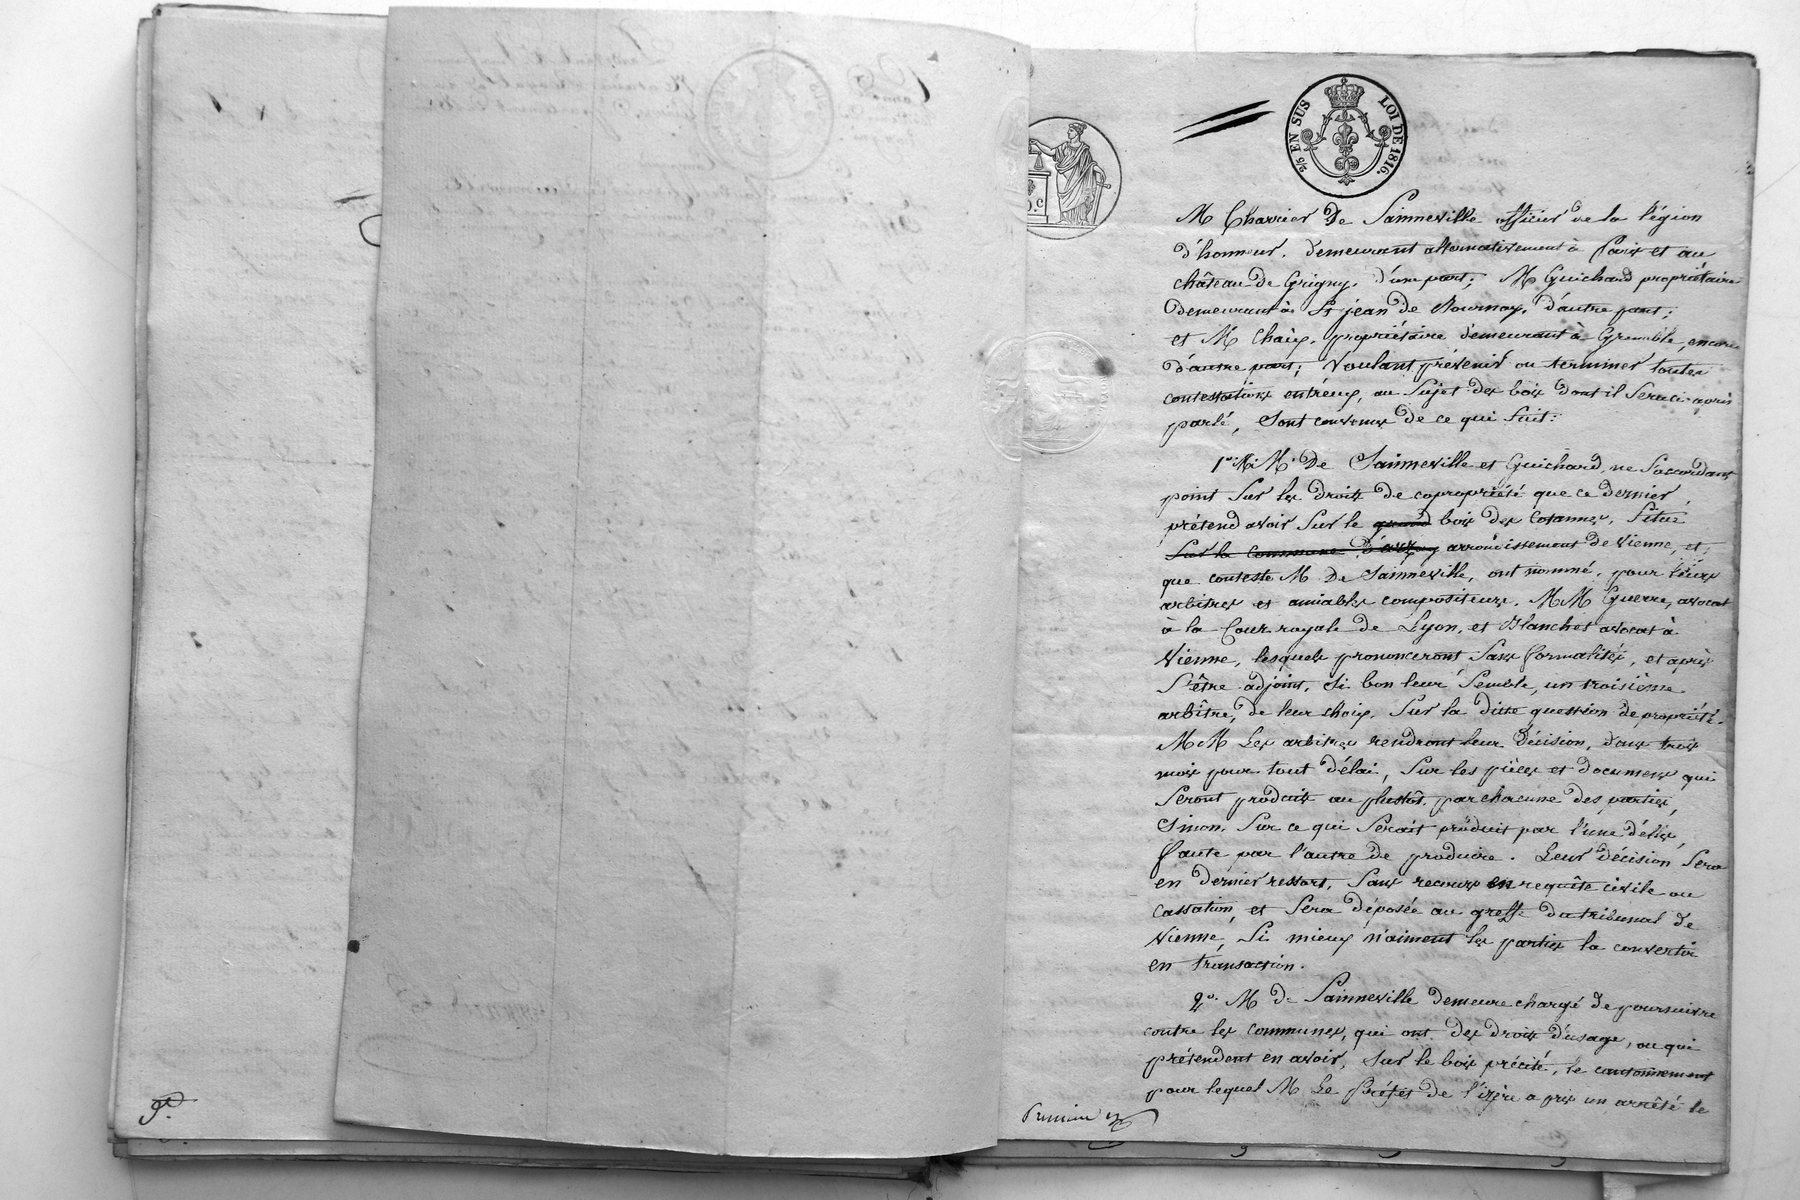 2/5 EN SUS LOI DE 1816.
M Charrier De Sainneville officier de la légion
d'honneur, demeurant alternativement à Paris et au
château de Grigny, d'une part; M Guichard propriétaire
demeurant à St jean de Bournay, d'autre part;
et M Chaix, propriétaire demeurant à Grenoble, encore
d'autre part; Voulant prévenir ou terminer toutes
contestations entr'eux, au Sujet des bois dont il Sera ci-après
parlé, Sont convenus de ce qui Suit:
1º. M.M. De Sainneville et Guichard, ne S'accordant
point Sur les droits de copropriété que ce dernier
prétend avoir Sur le grand bois des Cosannes, Situé
Sur la commune d' arrondissement de Vienne, et
que conteste M De Sainneville, ont nommé, pour leurs
arbitres et amiables compositeurs, MM Guerre, avocat
à la Cour royale de Lyon, et Blanchet avocat à
Vienne, lesquels prononceront Sans formalités, et après
S'être adjoint, Si bon leur Semble, un troisième
arbître, de leur choix, Sur la ditte question de propriété.
MM Les arbitres rendront leur Décision, dans trois
mois pour tout délai, Sur les pièces et documens qui
Seront produits au plustôt, par chacune des parties,
Sinon, Sur ce qui Serait produit par l'une d'elles,
faute par l'autre de produire. Leur décision Sera
en dernier ressort, Sans recours en requête civile ou
cassation, et Sera déposée au greffe du tribunal de
Vienne, Si mieux n'aiment les parties la convertir
en transaction.
2º. M de Sainneville demeure chargé de poursuivre
contre les communes, qui ont des droits d'usage, ou qui
prétendent en avoir, Sur le bois précité, le cantonnement
pour lequel M Le Préfet de l'isère a pris un arrêté le